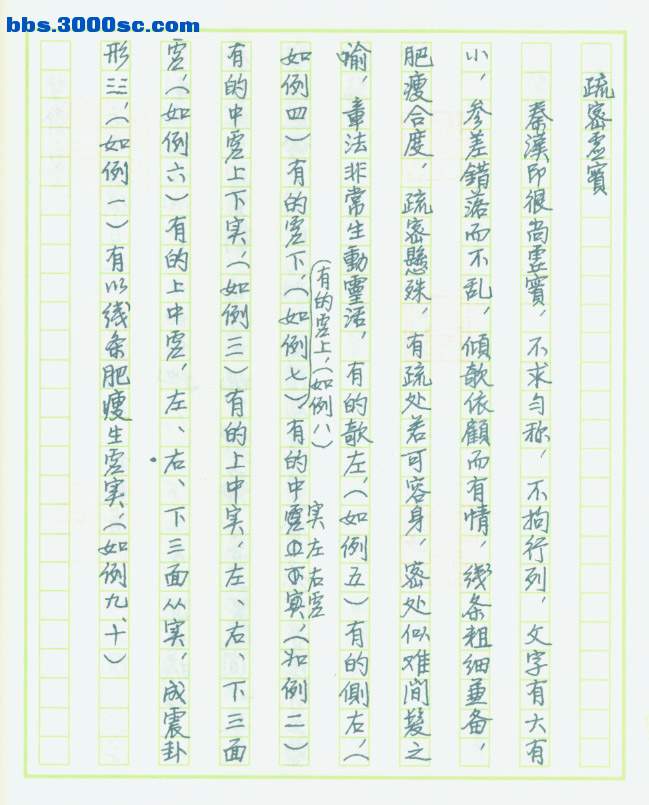 bbs.3000sc.com
疏密虚實
秦漢印很尚虚實，不求匀称，不拘行列，文字有大有
小，参差錯落而不乱，傾欹依顧而有情，线条粗细兼备，
肥瘦合度，疏密懸殊，有疏处若可容身，密处似难间髮之
喻，章法非常生動靈活，有的欹左，（如例五）有的側右，（
（有的虚上，（如例八）
如例四）有的虚下，（如例七），有的中实左右虚，（如例二）
有的中虚上下实，（如例三）有的上中实，左、右、下三面
虚，（如例六）有的上中虚，左、右、下三面从实，成震卦
形☳，（如例一）有以线条肥瘦生虚实，（如例九、十）